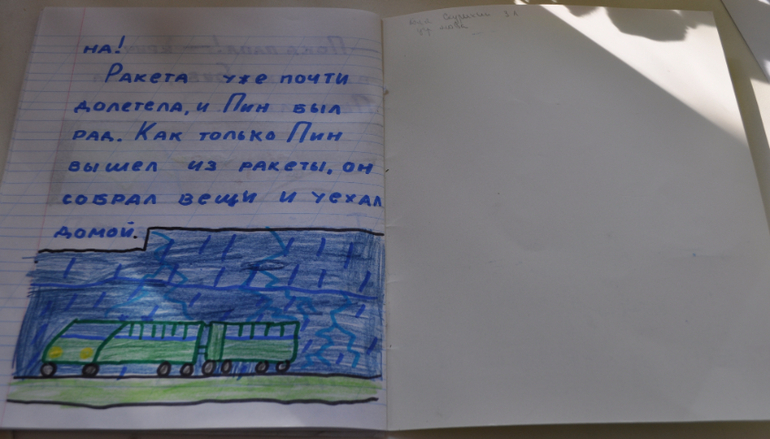 на!
Ракета уже почти
долетела, и Пин был
рад. Как только Пин
вышел из ракеты, он
собрал вещи и уехал
домой.